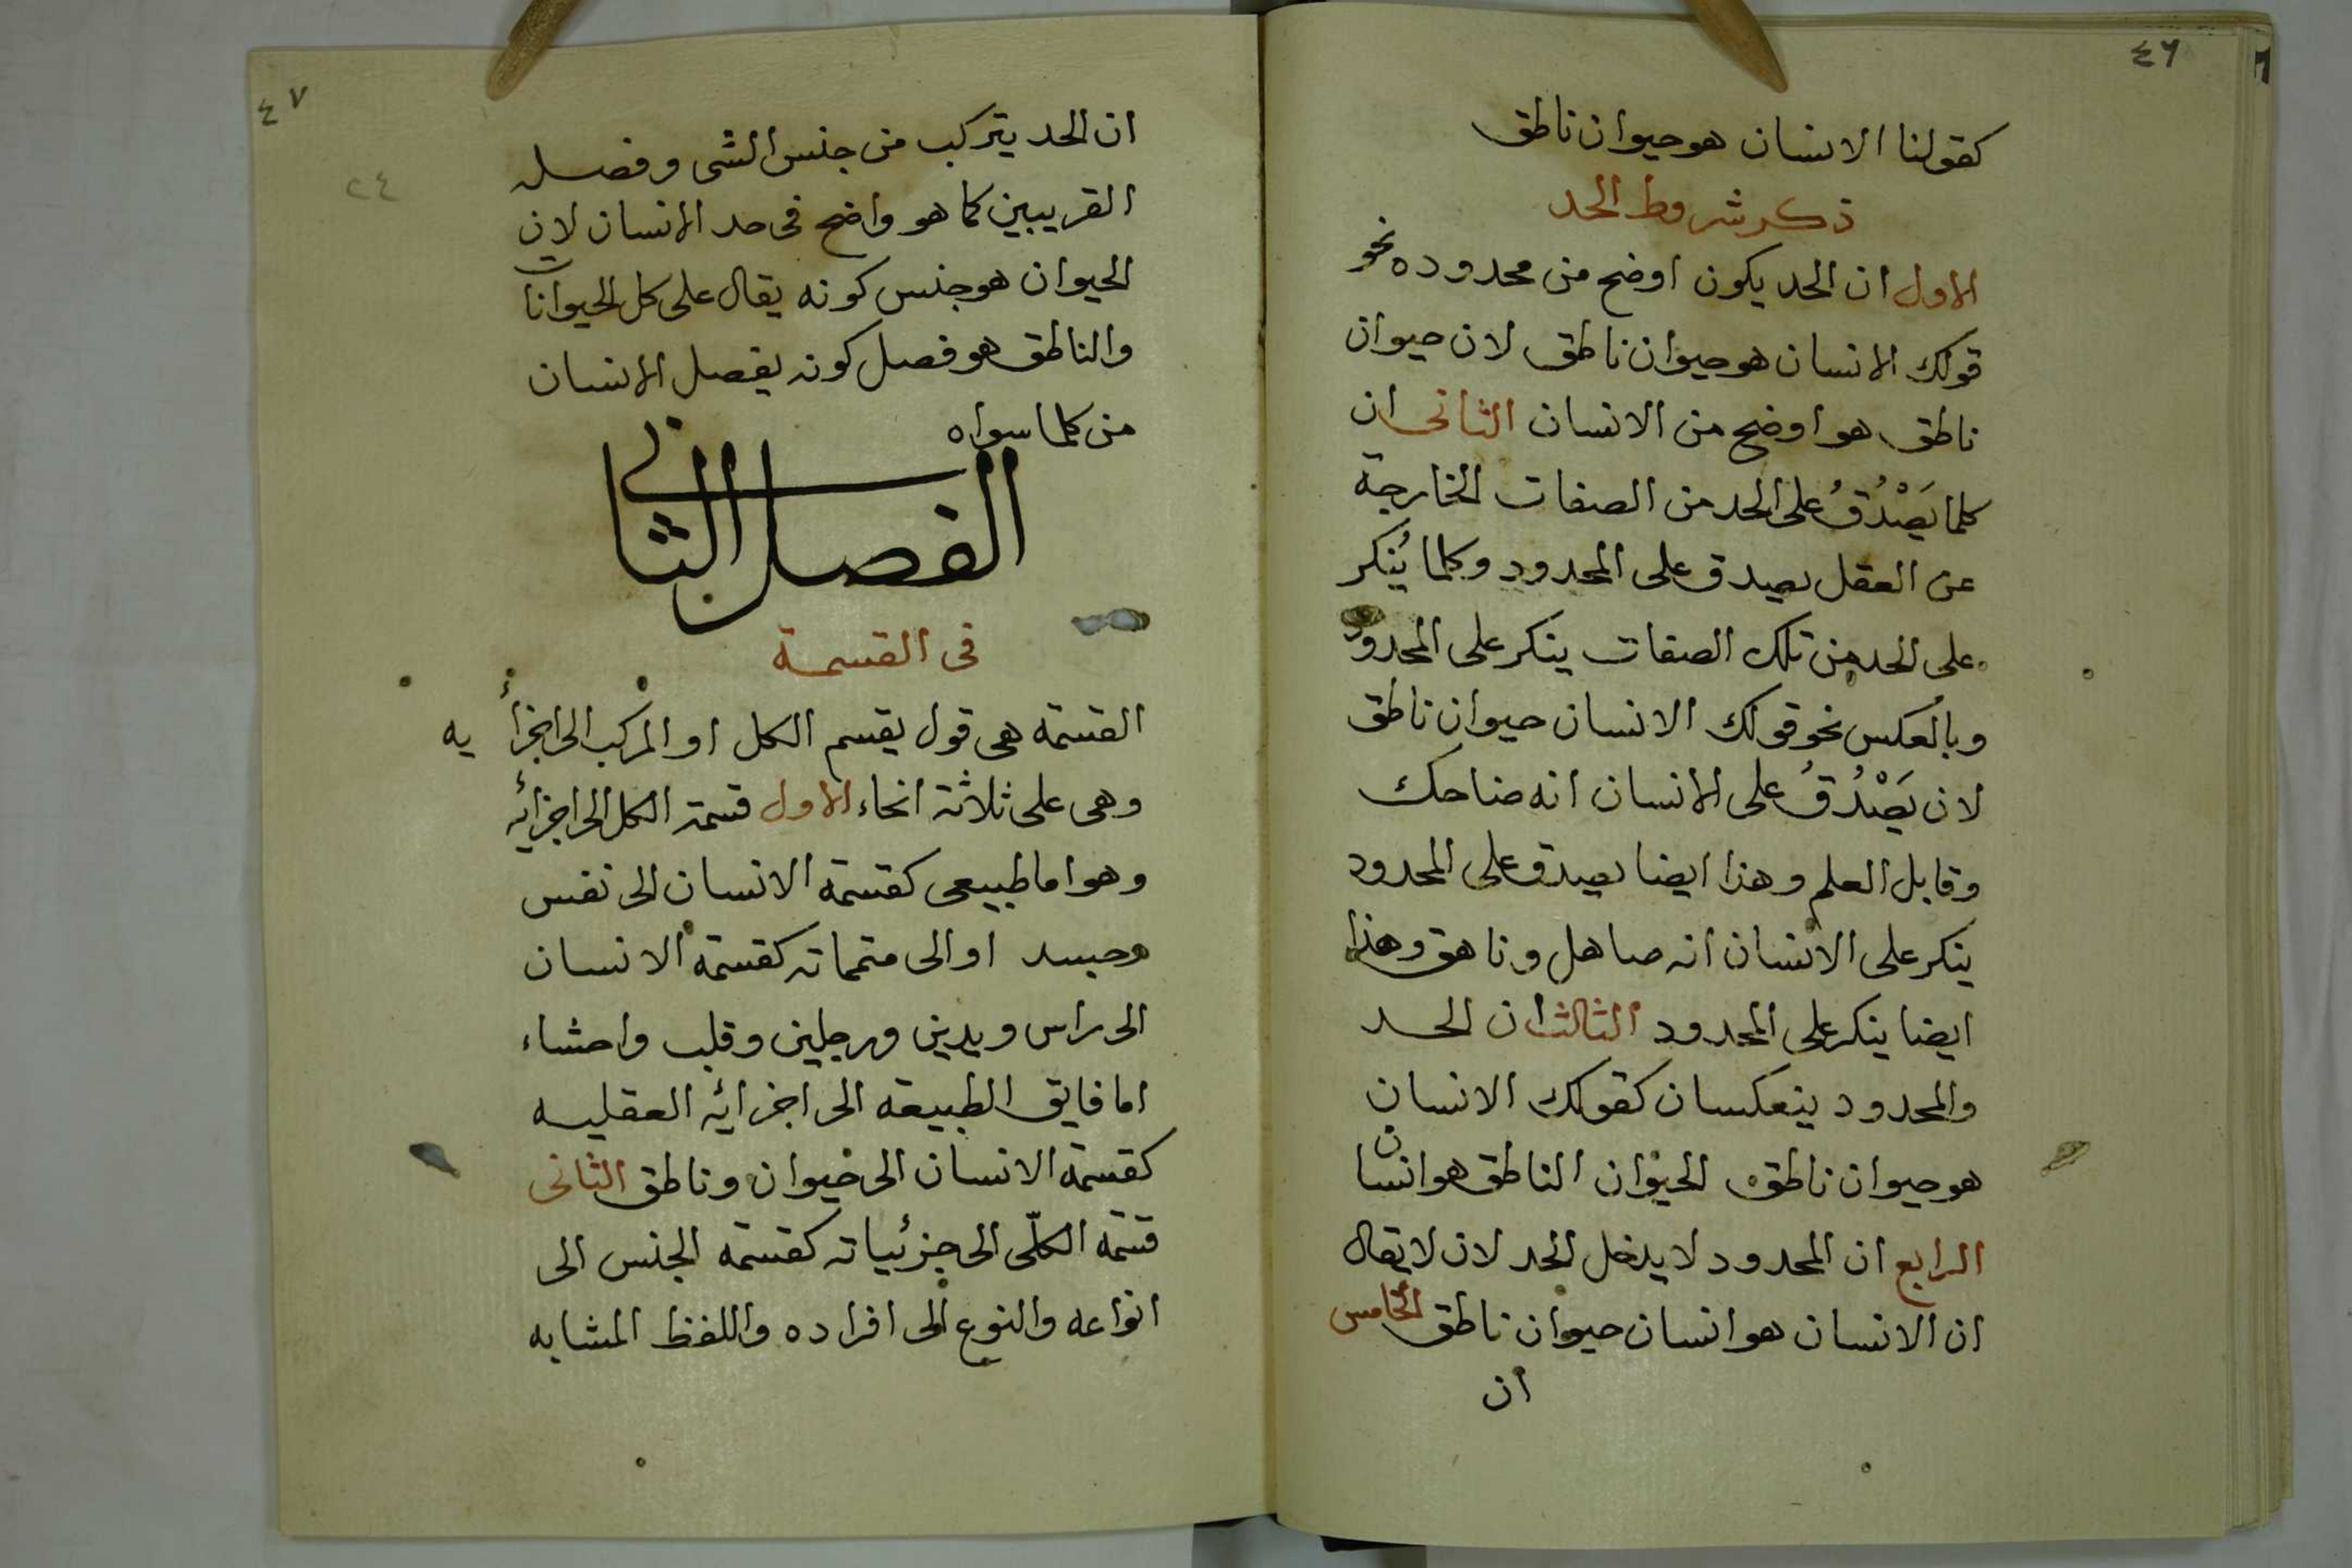 ٤٦
كقولنا الانسان هو حيوان ناطق
ذكر شروط الحد
الاول ان الحد يكون اوضح من محدوده نحو
قولك الانسان هو حيوان ناطق لان حيوان
ناطق هو اوضح من الانسان الثانى ان
كلما يَصْدُقُ على الحد من الصفات الخارجة
عن العقل يصدق على المحدود وكلما يُنكر
على الحد من تلك الصفات ينكر على المحدود
وبالعكس نحو قولك الانسان حيوان ناطق
لان يَصْدُقُ على الانسان انه ضاحك
وقابل العلم وهذا ايضا يصدق على المحدود
ينكر على الانسان انه صاهل وناهق وهذا
ايضا ينكر على المحدود الثالث ان الحد
والمحدود ينعكسان كقولك الانسان
هو حيوان ناطق الحيوان الناطق هو انسان
الرابع ان المحدود لا يدخل الحد لان لا يقال
ان الانسان هو انسان حيوان ناطق الخامس
ان
٤٧
٢٤
ان الحد يتركب من جنس الشى وفصله
القريبين كما هو واضح فى حد الانسان لان
الحيوان هو جنس كونه يقال على كل الحيوانات
والناطق هو فصل كونه يفصل الانسان
من كلما سواه
الفصل الثانى
فى القسمة
القسمة هى قول يقسم الكل او المركب الى اجزأيه
وهى على ثلاثة انحاء الاول قسمة الكل الى اجزائه
وهو اما طبيعى كقسمة الانسان الى نفس
وجسد او الى متمماته كقسمة الانسان
الى راس ويدين ورجلين وقلب واحشاء
اما فايق الطبيعة الى اجزائه العقليه
كقسمة الانسان الى حيوان وناطق الثانى
قسمة الكلّى الى جزئياته كقسمة الجنس الى
انواعه والنوع الى افراده واللفظ المشابه